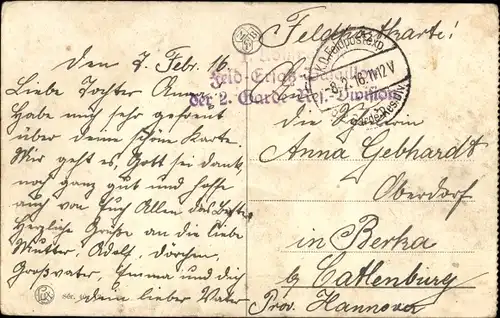 Feldpostkarte!
Den 7. Febr. 16
Liebe Tochter Anna,
Habe mich sehr gefreut
über deine schöne Karte.
Mir geht es, Gott sei dank,
noch ganz gut und hoffe
auch von Euch Allen das Beste
Herzliche Grüße an die liebe
Mutter, Adolf, Dorchen,
Großvater, Emma und dich
dein lieber Vater
Feld-Ersatz-Bataillon
der 2. Garde-Res.-Division
Feldpostexp.
8.2.16.11-12V
Garde-Res. Div.
An
die Schülerin
Anna Gebhardt
Oberdorf
in Berka
b/ Catlenburg
Prov. Hannover
Sér.